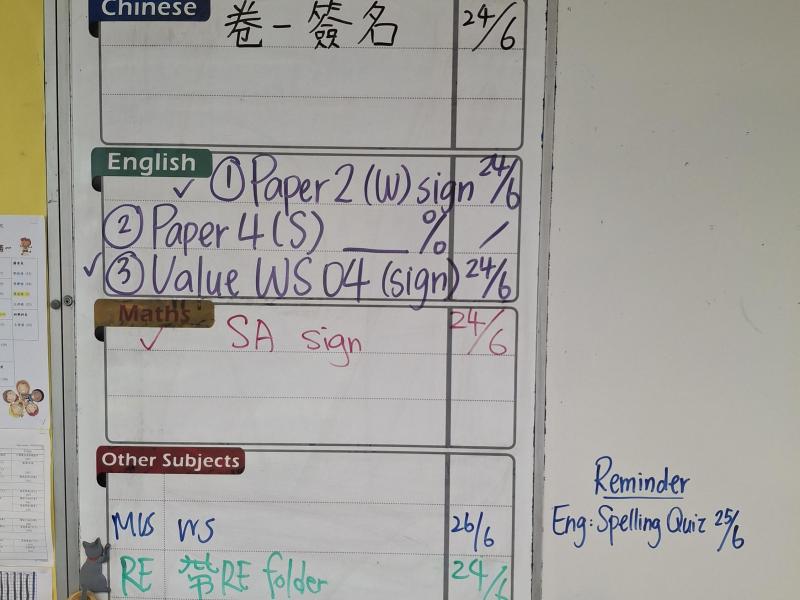 Chinese
卷一簽名 24/6
English
✓ ① Paper 2 (W) sign 24/6
② Paper 4 (S) ___ % /
✓ ③ Value WS 04 (sign) 24/6
Maths
✓ SA sign 24/6
Other Subjects
MUS WS 26/6
RE 帶RE folder 24/6
Reminder
Eng: Spelling Quiz 25/6